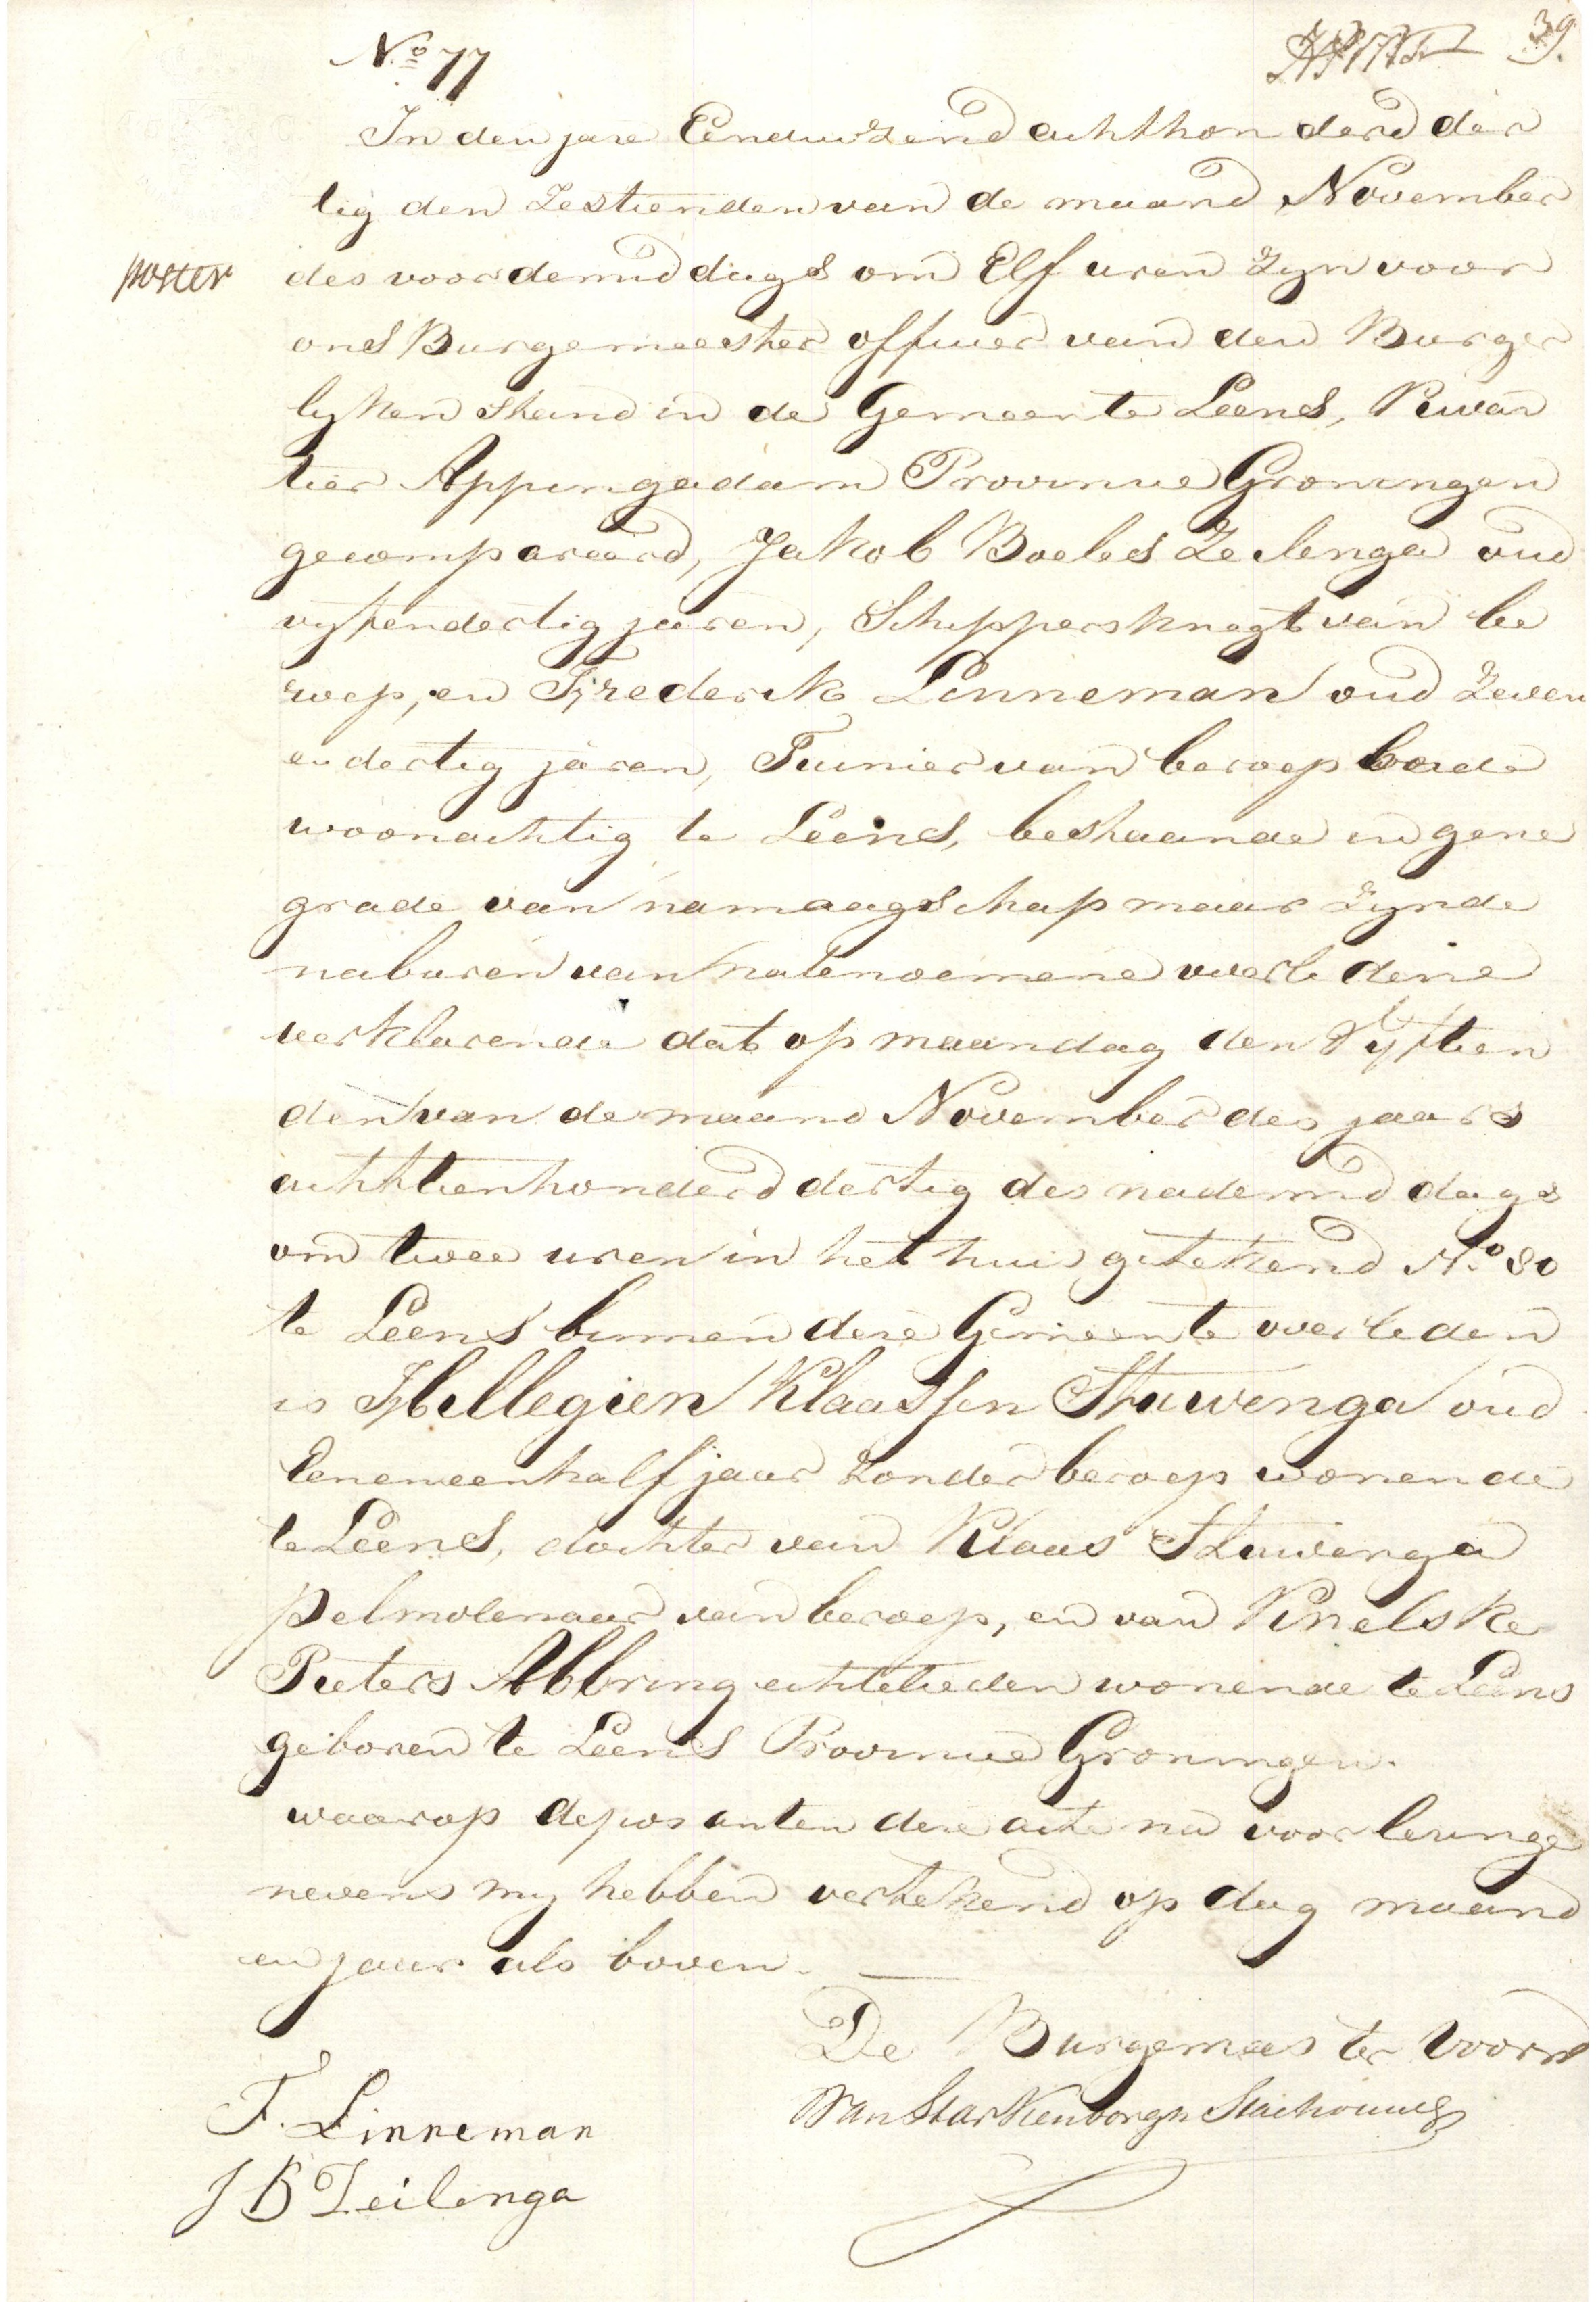 No 77
39.
In den jare Eenduizend achthonderd der
tig den Zestienden van de maand November
poster
des voordemiddags om Elf uren Zyn voor
ons Burgemeester officier van den Burger
lyken Stand in de Gemeente Leens, Kwar
tier Appingadam Provincie Groningen
gecompareerd, Jakob Boeles Zeilenga oud
vyfendertig jaren, Schippersknegt van be
roep, en Frederik Linneman oud Zeven
endertig jaren, Tuinier van beroep beide
woonachtig te Leens, bestaande in gene
grade van namaagschap maar Zynde
naburen van natenoemene overledene
verklarende dat op maandag den Vyftien
den van de maand November des jaars
achttienhonderd dertig des nademiddags
om twee uren in het huis getekend No 80
te Leens binnen deze Gemeente overleden
is Hillegien Klaassen Stuwenga oud
Eeneneenhalf jaar Zonder beroep wonende
te Leens, dochter van Klaas Stuwenga
pelmolenaar van beroep, en van Knelske
Pieters Abbring echtelieden wonende te Leens
geboren te Leens Provincie Groningen.
waarop deposanten deze acte na voorlezinge
nevens my hebben vertekend op dag maand
en jaar als boven.
De Burgemeester voorn
F. Linneman
Van Starkenborgh Stachouwer
J B Zeilenga